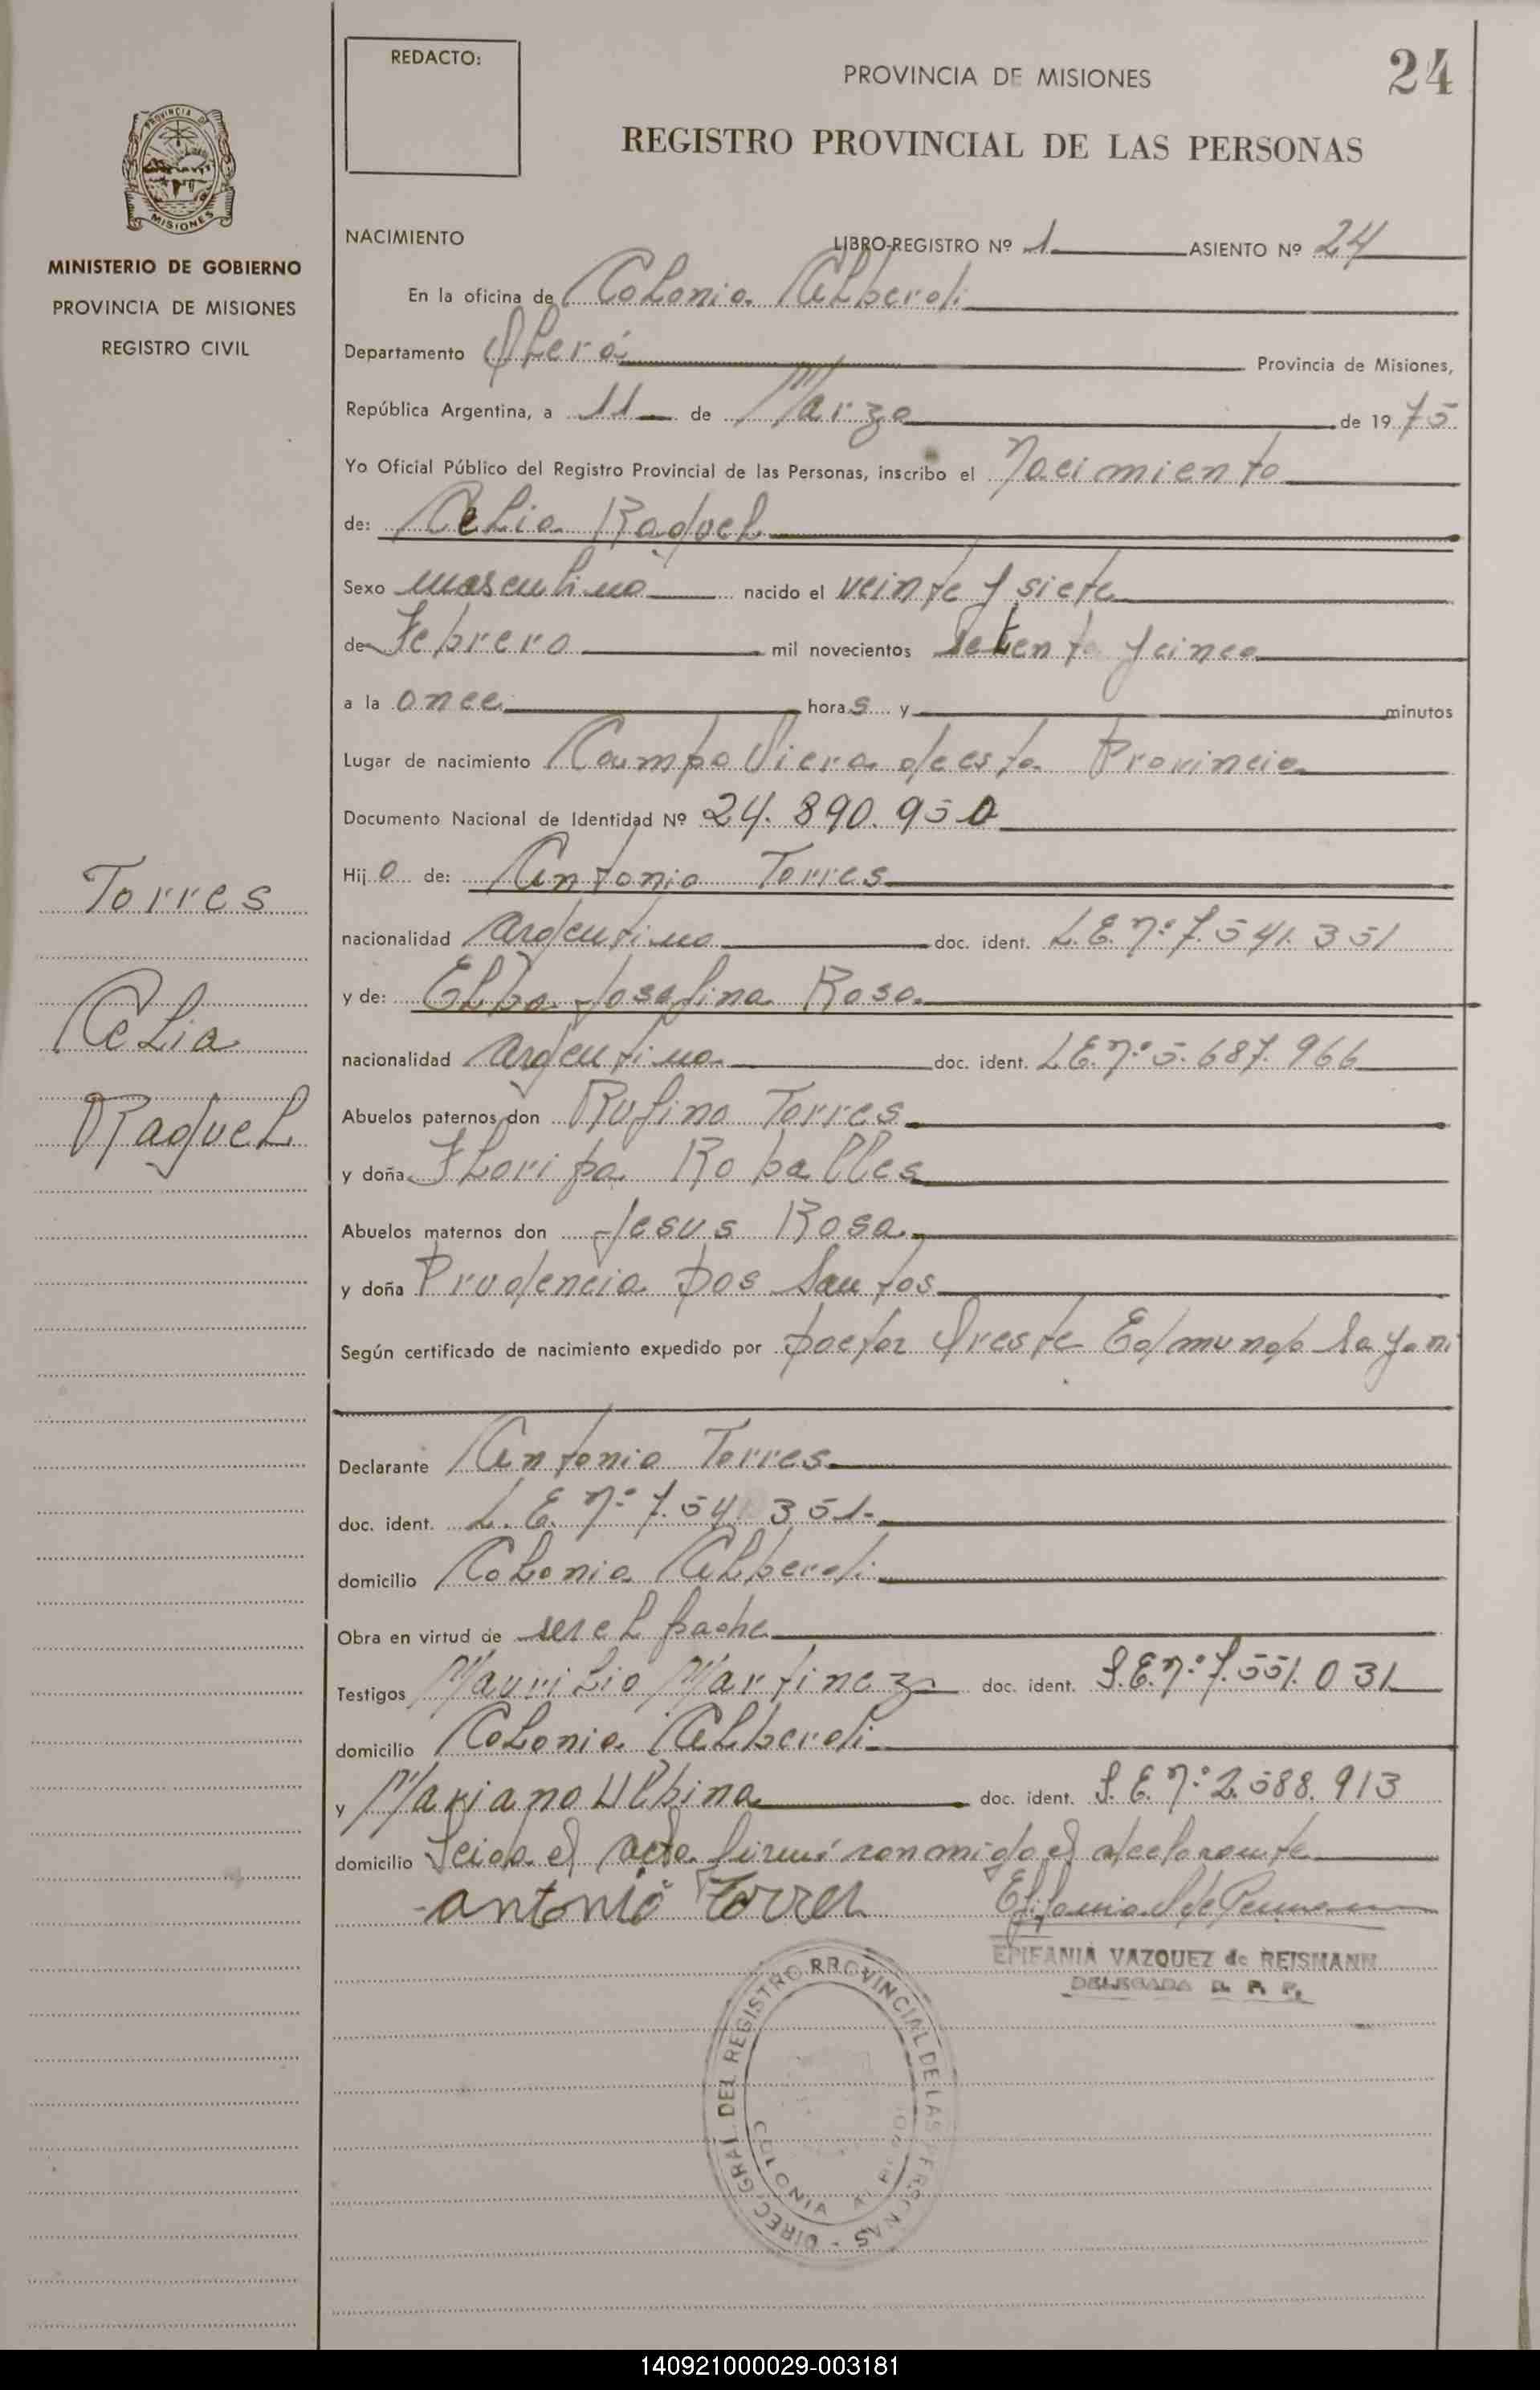 REDACTO:
PROVINCIA DE MISIONES
24
REGISTRO PROVINCIAL DE LAS PERSONAS
PROVINCIA DE MISIONES
MINISTERIO DE GOBIERNO
PROVINCIA DE MISIONES
REGISTRO CIVIL
NACIMIENTO LIBRO-REGISTRO Nº 1 ASIENTO Nº 24
En la oficina de Colonia Alberdi
Departamento Oberá Provincia de Misiones,
República Argentina, a 11 de Marzo de 1975
Yo Oficial Público del Registro Provincial de las Personas, inscribo el Nacimiento
de: Celia Raquel
Sexo masculino nacido el veinte y siete
de Febrero mil novecientos setenta y cinco
a la once horas y minutos
Lugar de nacimiento Campo Viera de esta Provincia
Documento Nacional de Identidad Nº 24.890.950
Hijo de: Antonio Torres
nacionalidad argentino doc. ident. L.E. nº 7.541.351
y de: Elba Josefina Rosa
nacionalidad argentina doc. ident. L.E. nº 5.687.966
Abuelos paternos don Rufino Torres
y doña Floripa Roballes
Abuelos maternos don Jesus Rosa
y doña Prudencia Dos Santos
Según certificado de nacimiento expedido por Doctor Oreste Edmundo
Declarante Antonio Torres
doc. ident. L.E. nº 7.541.351
domicilio Colonia Alberdi
Obra en virtud de ser el padre
Testigos Maurilio Martinez doc. ident. L.E. nº 7.551.031
domicilio Colonia Alberdi
y Mariano Albina doc. ident. L.E. nº 2.588.913
domicilio Leida el acta firmó conmigo el declarante
antonio Torres
EPIFANIA VAZQUEZ de REISMANN
DELEGADA R. P. P.
DIREC. GRAL. DEL REGISTRO PROVINCIAL DE LAS PERSONAS
COLONIA ALBERDI
Torres
Celia
Raquel
140921000029-003181